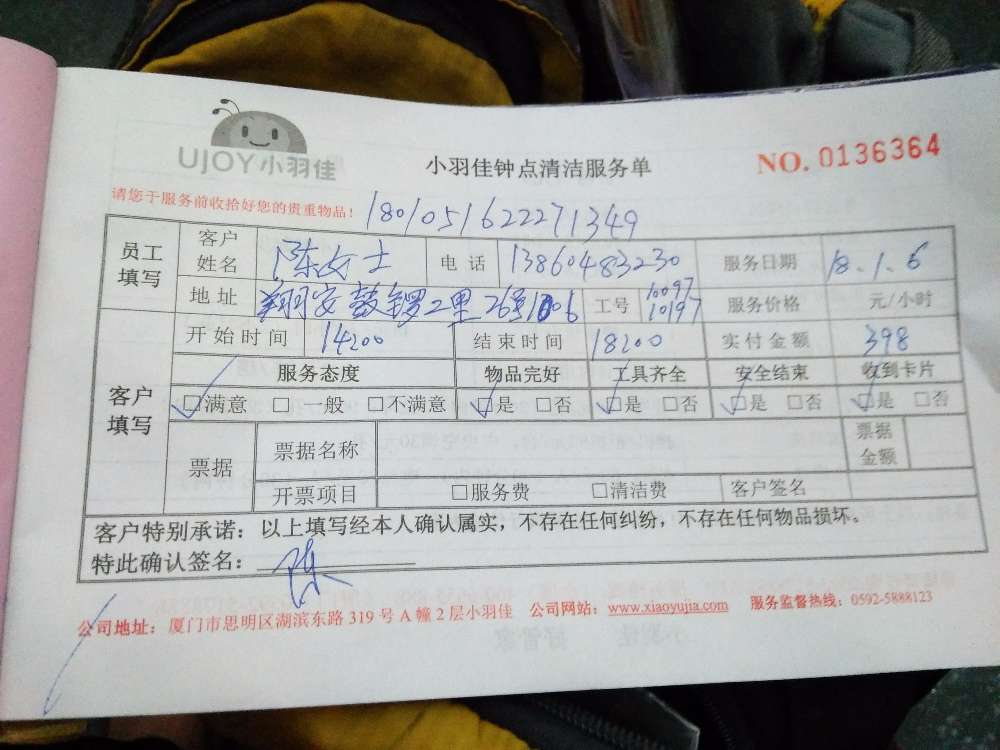 UJOY小羽佳
小羽佳钟点清洁服务单
NO. 0136364
请您于服务前收拾好您的贵重物品!
1801051622271349
员工填写 客户姓名 陈女士 电话 13860483230 服务日期 18.1.6
地址 翔安鼓锣二里26号1006 工号 10097 10197 服务价格 元/小时
客户填写 开始时间 14200 结束时间 18200 实付金额 398
服务态度 物品完好 工具齐全 安全结束 收到卡片
☑满意 □一般 □不满意 ☑是 □否 ☑是 □否 ☑是 □否 ☑是 □否
票据 票据名称 票据金额
开票项目 □服务费 □清洁费 客户签名
客户特别承诺:以上填写经本人确认属实,不存在任何纠纷,不存在任何物品损坏。
特此确认签名: 陈
公司地址:厦门市思明区湖滨东路 319 号 A 幢 2 层小羽佳 公司网站:www.xiaoyujia.com 服务监督热线:0592-5888123